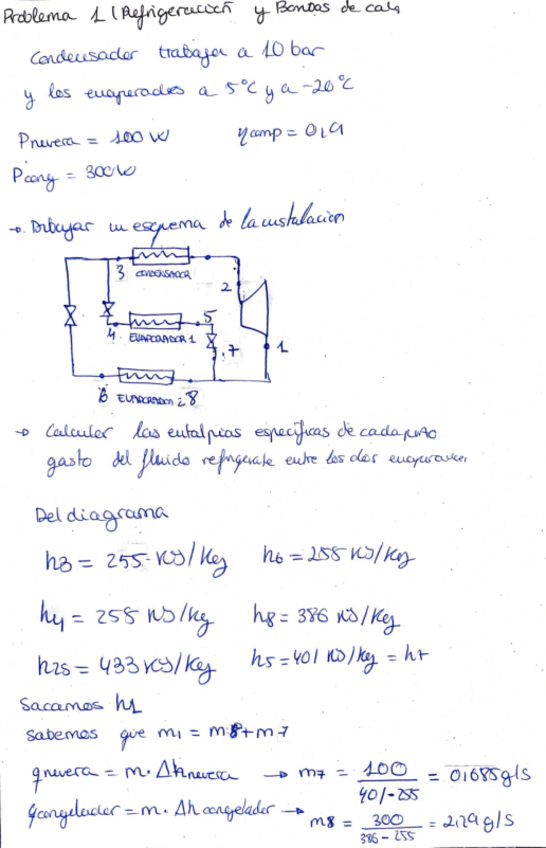 Problema 1 (Refrigeración y Bombas de calo
Condensador trabaja a 10 bar
y los evaporadores a 5°C y a -20°C
Pnevera = 100 W ηcomp = 0,9
Pcong = 300W
→ Dibujar un esquema de la instalacion
3 CONDENSADOR
2
5
4 EVAPORADOR 1
7
1
6 EVAPORADOR 2 8
→ Calcular las entalpias específicas de cada punto
gasto del fluido refrigerante entre los dos evaporadores
Del diagrama
h3 = 255 KJ/Kg h6 = 255 KJ/Kg
h4 = 255 KJ/Kg h8 = 386 KJ/Kg
h2s = 433 KJ/Kg h5 = 401 KJ/Kg = h7
Sacamos h1
sabemos que m1 = m8 + m7
qnevera = m · Δhnevera → m7 = 100 / 401-255 = 0,685 g/s
qcongelador = m · Δh congelador → m8 = 300 / 386-255 = 2,29 g/s